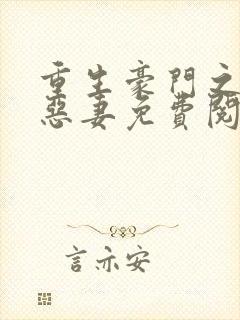 重生豪門之
惡妻免費閱
言亦安